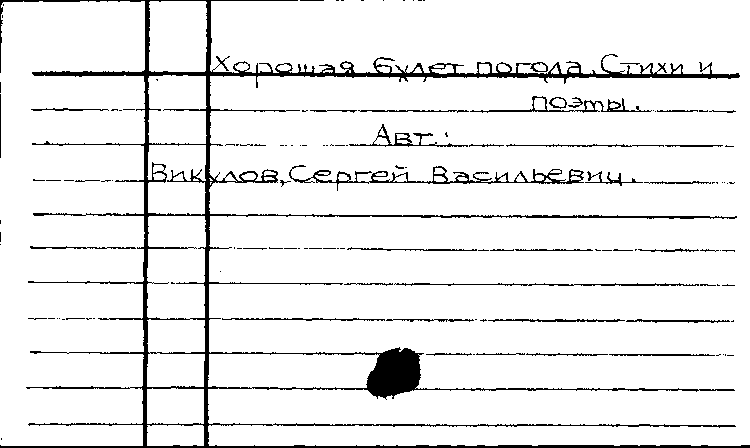 Хорошая будет погода. Стихи и
поэты.
Авт.:
Викулов, Сергей Васильевич.